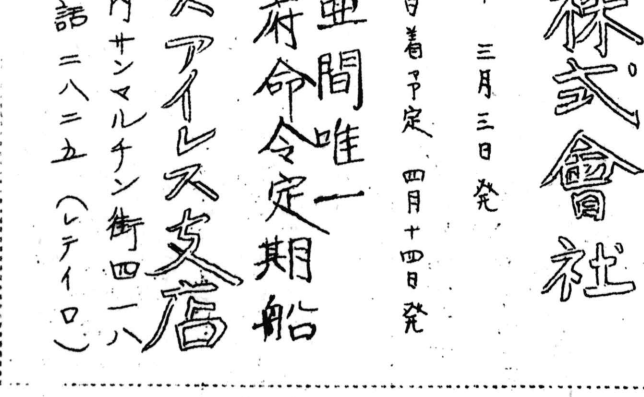 株式會社
三月三日発
日着予定 四月十四日発
亜間唯一
府命令定期船
スアイレス支店
内サンマルチン街四一八
話 二八二五 (レテイロ)